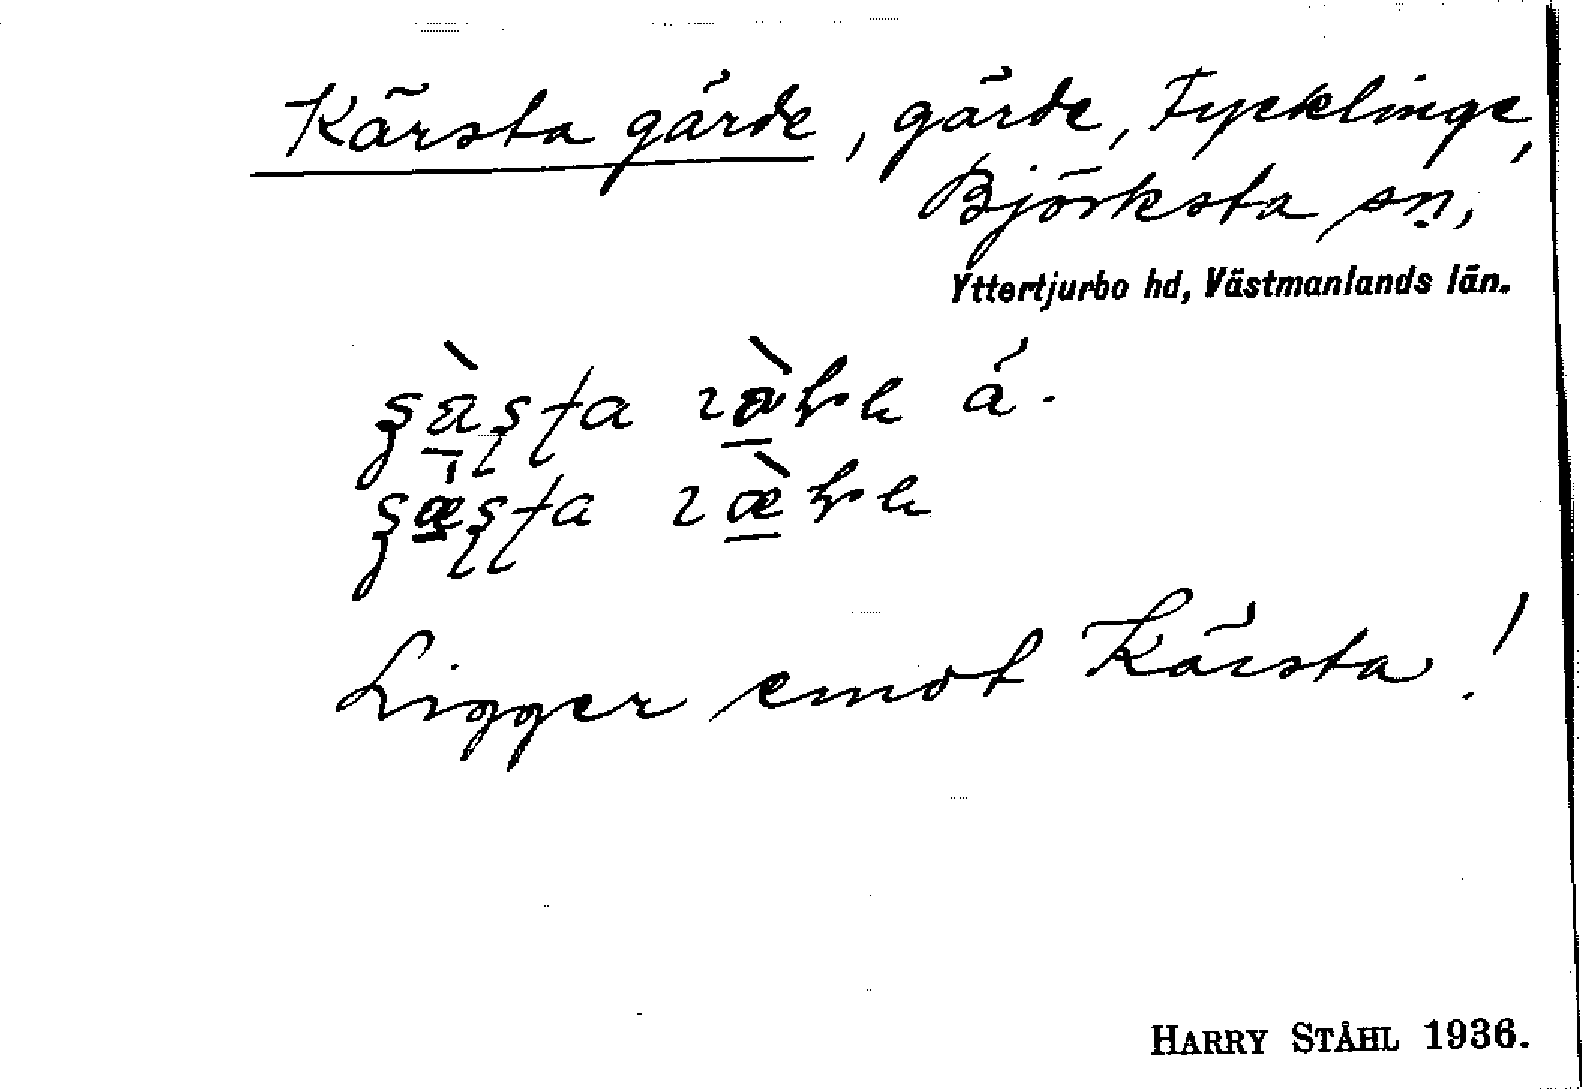 Kärsta gärde, gärde, Tycklinge,
Björksta sn,
Yttertjurbo hd, Västmanlands län.
Ligger emot Kärsta!
HARRY STÅHL 1936.